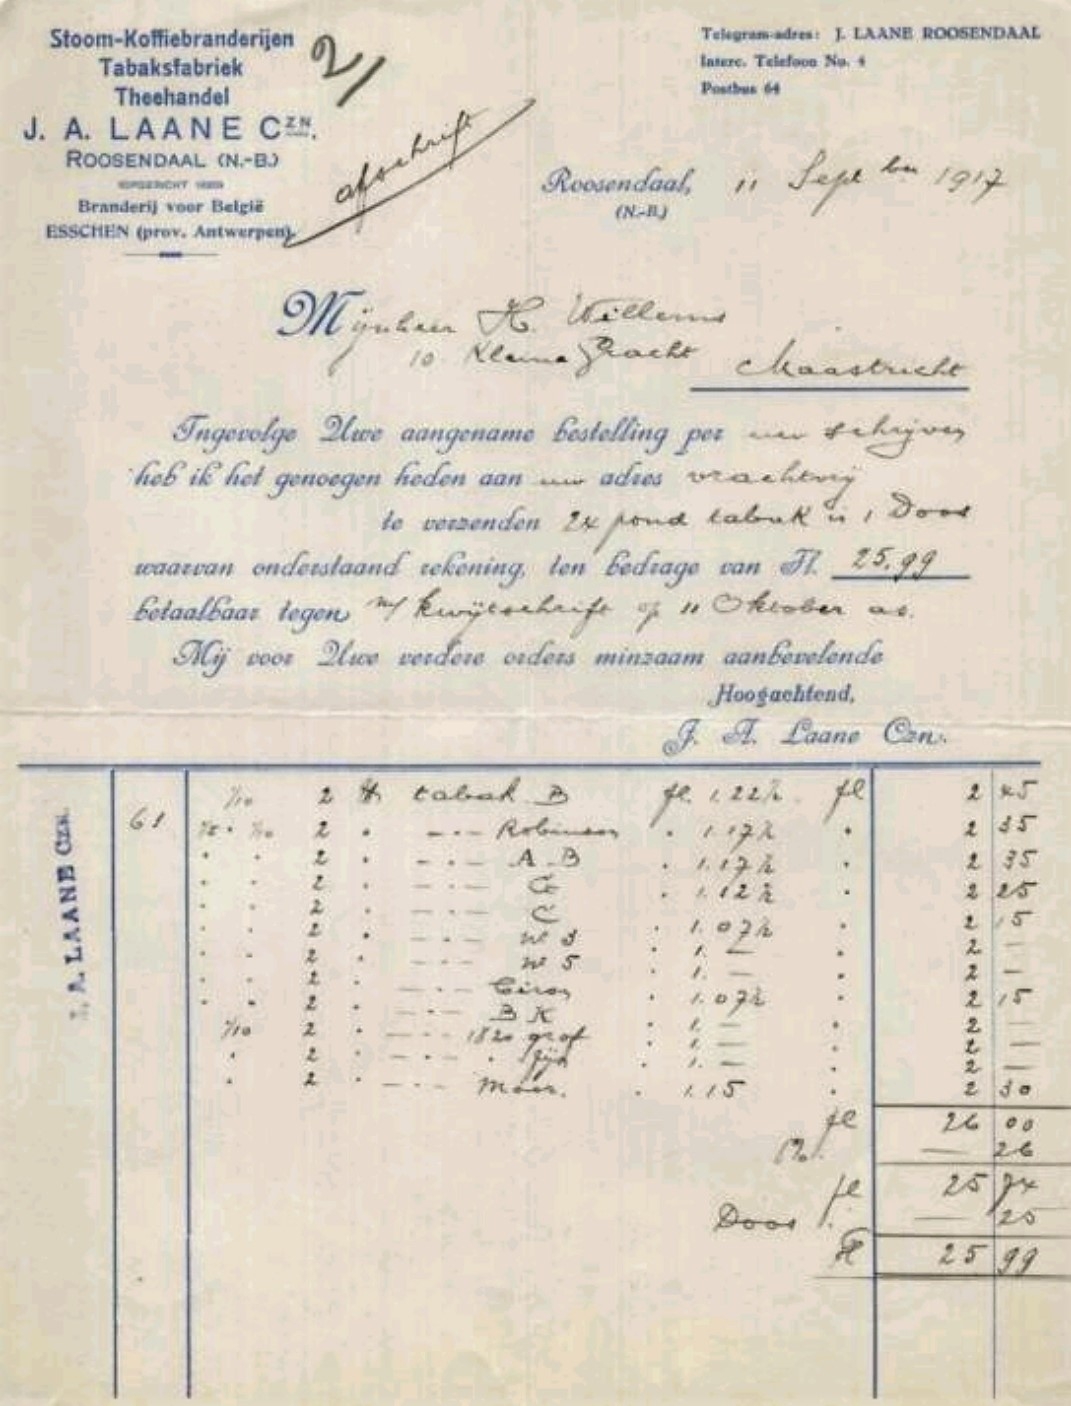 Stoom-Koffiebranderijen
Tabaksfabriek
Theehandel
J. A. LAANE CZN.
ROOSENDAAL (N.-B.)
Branderij voor België
ESSCHEN (prov. Antwerpen)
21
afschrift
Telegram-adres: J. LAANE ROOSENDAAL
Interc. Telefoon No. 4
Postbus 64
Roosendaal, 11 Septber 1917
(N.-B.)
Mijnheer H. Willems
10 Kleine Gracht Maastricht
Ingevolge Uwe aangename bestelling per uw schrijven
heb ik het genoegen heden aan uw adres vrachtvrij
te verzenden 24 pond tabak in 1 Doos
waarvan onderstaand rekening, ten bedrage van Fl. 25.99
betaalbaar tegen m/ kwijtschrift op 11 Oktober as.
Mij voor Uwe verdere orders minzaam aanbevelende
Hoogachtend,
J. A. Laane Czn.
J. A. LAANE CZN.
1/10 2 ℔ tabak B fl. 1.22½ fl 2 45
61 2 " — " — Robinson " 1.17½ " 2 35
" " 2 " — " — A B " 1.17½ " 2 35
" " 2 " — " — " 1.12½ " 2 25
" " 2 " — " — C " 1.07½ " 2 15
" " 2 " — " — No 3 " 1. — " 2 —
" " 2 " — " — No 5 " 1. — " 2 —
" " 2 " — " — " 1.07½ " 2 15
" " 2 " — " — B K " 1. — " 2 —
1/10 2 " — " — 1820 grof " 1. — " 2 —
" 2 " — " — " fijn " 1. — " 2 —
" 2 " — " — Moor. " 1.15 " 2 30
fl 26 00
1%. — 26
fl 25 74
Doos " — 25
Fl 25 99